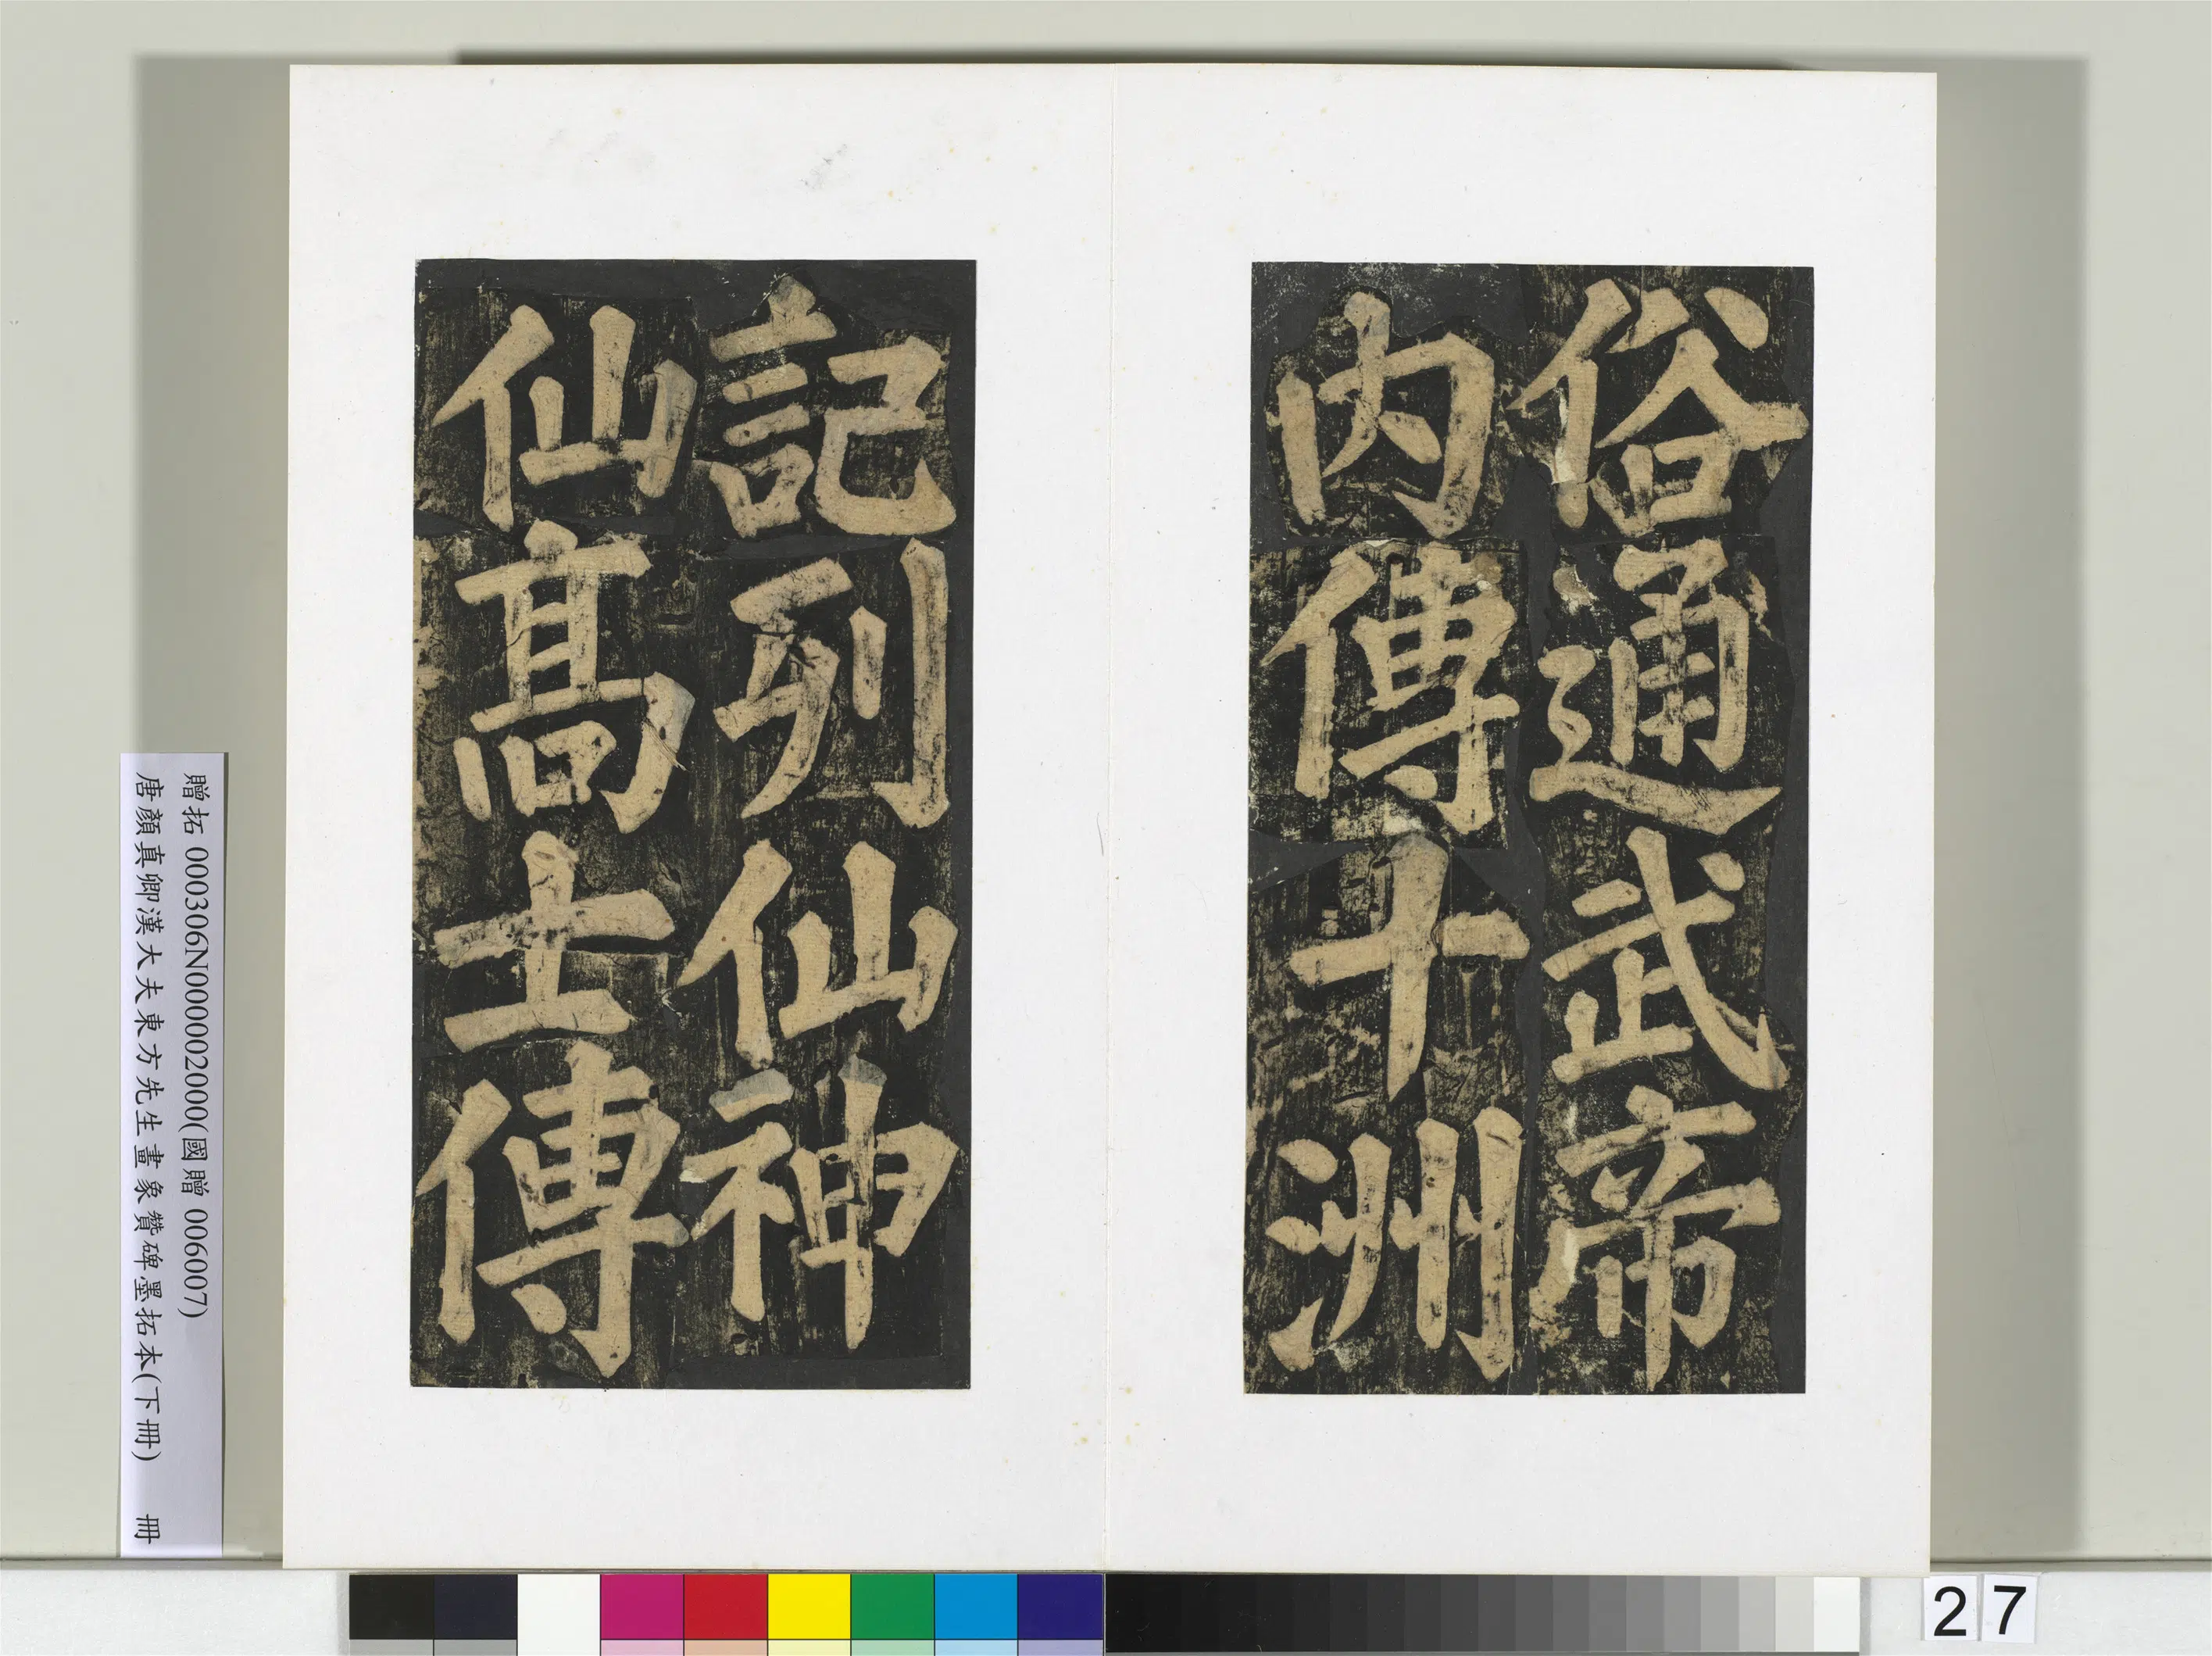 俗通武帝
内傳十洲
記列仙神
仙髙士傳
贈拓 000306N000002000(國贈 006007)
唐顏真卿漢大夫東方先生畫象贊碑墨拓本(下冊) 冊
27